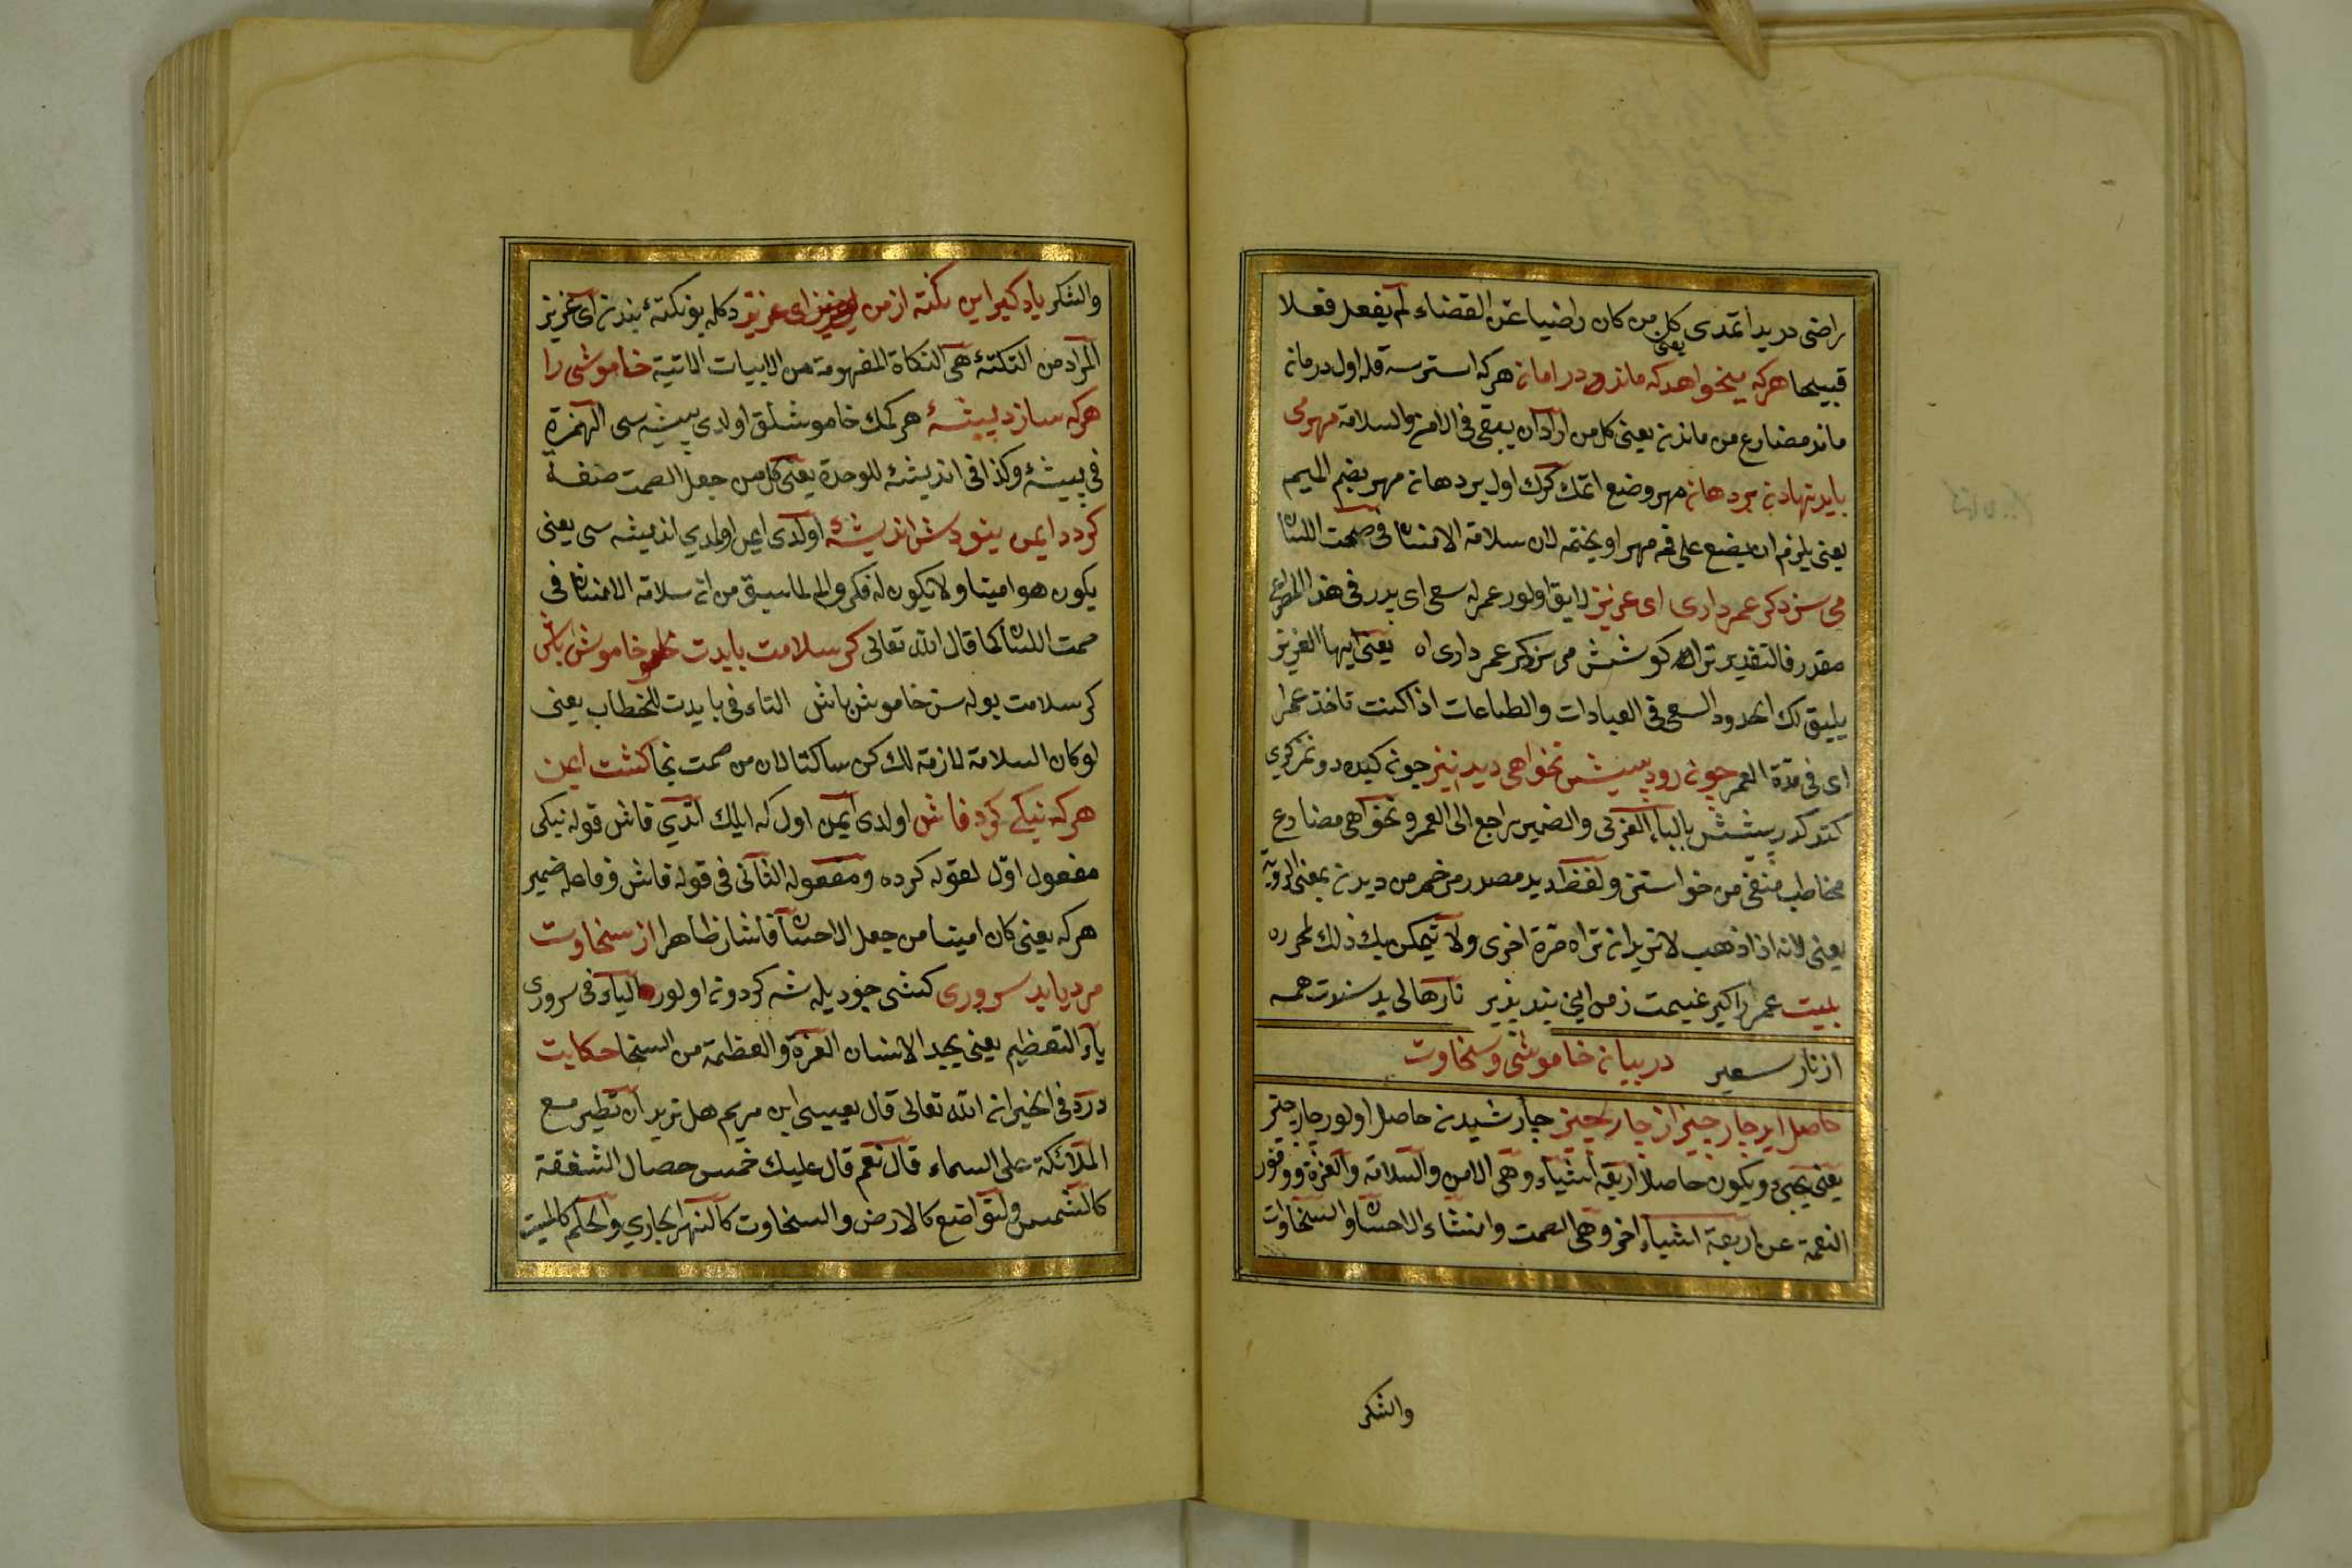 راضى دريدا تمدى كل من كان راضيا عن القضاء لم يفعل فعلا
يعنى
قبيحا هركه ميخواهد كه ماند در امان هركه استرسه قله اول در مان
ماند مضارع من ماندن يعنى كل من اراد ان يبقى فى الامن والسلامة مهر مى
بايد نهادن بر دهان مهر وضع اتمك كرك اول بر دهان مهر بضم الميم
يعنى يلزم ان يضع على فمه مهرا ويختمه لان سلامة الانسان فى صمت اللسان
مى سزد كر عمر دارى اى عزيز لايق اولور عمرله سعى اى پدر فى هذا المصراع
مقدر فالتقدير ترا كوشش مى سزد كر عمر دارى اه يعنى ايها العزيز
يليق لك السعى فى العبادات والطاعات اذا كنت تاخذ عمرا
اى فى مدة العمر چون رود پيشش نخواهى ديد نيز چون كيده دونمز كرى
كتدكدر پيشش بالباء والضمير راجع الى العمر ونخواهى مضارع
مخاطب منفى من خواستن ولفظ ديد مصدر مرخم من ديدن بمعنى الرؤية
يعنى لانه اذا ذهب لا تريد ان تراه مرة اخرى ولا تمكن بك ذلك لمحرره
بيت عمر را كير غنيمت ز من اين پند پذير تا رها لى يد سندت همه
از نار سعير در بيان خاموشى وسخاوت
حاصل ايد چار چيز از چار چيز چار شيدن حاصل اولور چار چيز
يعنى يجئ ويكون حاصلا اربعة اشياء وهى الامن والسلامة والعزة ووفور
النعمة عن اربعة اشياء اخر وهى الصمت وانشاء الاحسان والسخاوات
والشكر
والشكر ياد كير اين نكته از من اى عزيز دكله بو نكته بندن اى عزيز
المراد من النكتة هى النكاة المفهومة من الابيات الاتية خاموشى را
هركه سازد پيشۀ هر كمك خاموشلق اولدى پيشه سى الهمزة
فى پيشۀ وكذا فى انديشۀ للوحدة يعنى كل من جعل الصمت صنفة
كردد ايمن نبودش انديشۀ اولدى ايمن اولمدى انديشه سى يعنى
يكون هو امينا ولا يكون له فكر والم لما سبق من ان سلامة الانسان فى
صمت اللسان كما قال الله تعالى كر سلامت بايدت خاموش باش
كر سلامت بوله سن خاموش باش التاء فى بايدت للخطاب يعنى
لو كان السلامة لازمة لك كن ساكتا لان من صمت نجا كشت ايمن
هركه نيكى كرد فاش اولدى ايمن اول كه ايلك اتدى فاش قوله نيكى
مفعول اول لقوله كرده ومفعوله الثانى فى قوله فاش وفاعله ضمير
هركه يعنى كان امينا من جعل الاحسان فاشا ظاهرا از سخاوت
مرد يابد سرورى كشى جود يله شه كردون اولور الياء فى سرورى
ياء التعظيم يعنى يجد الانسان العزة والعظمة من السخا حكايت
ورد فى الخبر ان الله تعالى قال بعيسى ابن مريم هل تريد ان تطير مع
الملائكة على السماء قال نعم قال عليك خمس خصال الشفقة
كالشمس والتواضع كالارض والسخاوت كالنهر الجارى والحلم كالميت